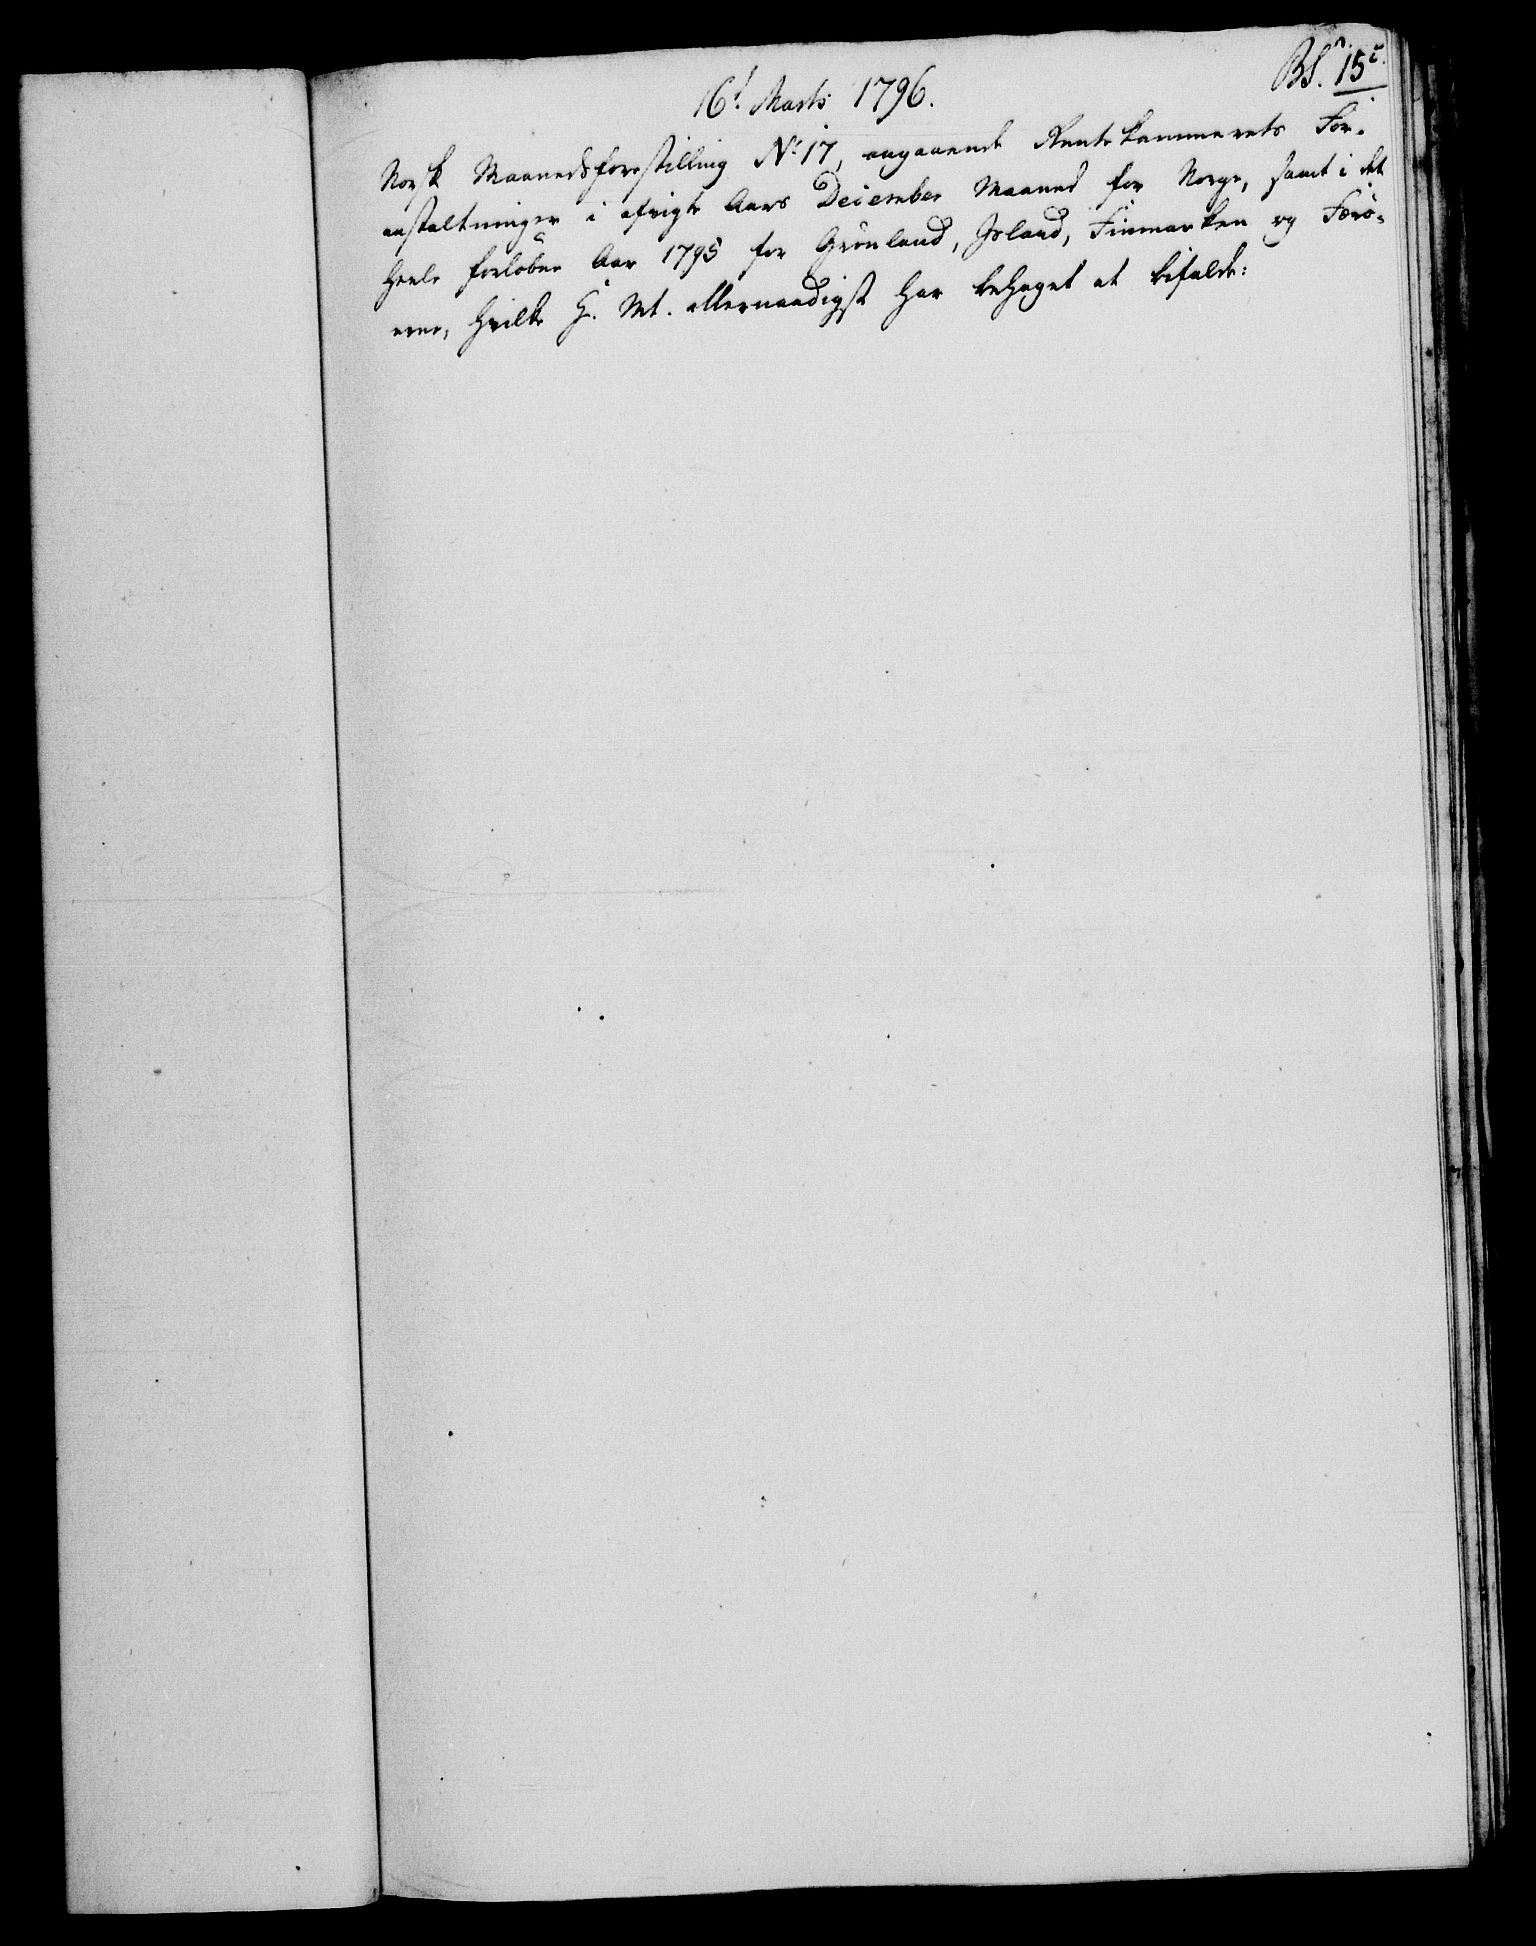 BS. 15c.
16d Marts 1796.
Norsk Maanedsforestilling No 17, angaaende Rentekammerets For-
anstaltninger i afvigte Aars December Maaned for Norge, samt i det
heele forløbne Aar 1795 for Grønland, Island, Finmarken og Færø-
erne, hvilke H. Mt. allernaadigst har behaget at bifalde: